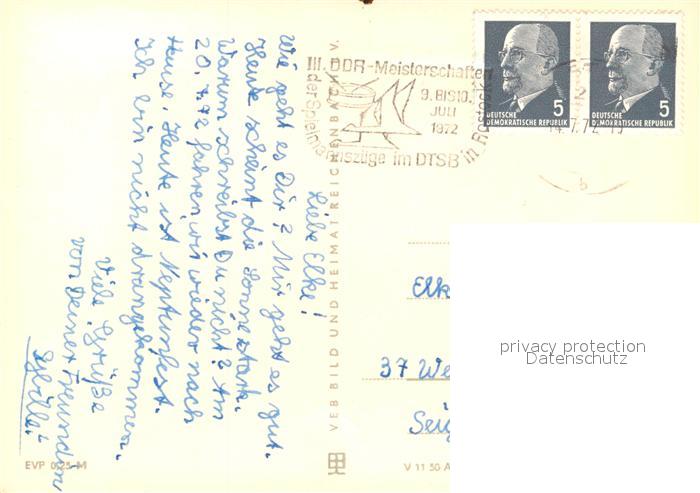 Liebe Elke!
Wie geht es Dir? Mir geht es gut.
Heute scheint die Sonne stark.
Warum schreibst Du nicht? Am
20.7.72 fahren wir wieder nach
Hause. Heute ist Neptunfest.
Ich bin nicht drangekommen.
Viele Grüße
von Deiner Freundin
Sybille!
III. DDR-Meisterschaften
der Spielmannszüge im DTSB in Rostock
9. BIS 10.
JULI
1972
5
DEUTSCHE
DEMOKRATISCHE REPUBLIK
5
DEUTSCHE
DEMOKRATISCHE REPUBLIK
14.7.72
b
VEB BILD UND HEIMAT REICHENBACH V.
Elk
37 We
privacy protection
Datenschutz
EVP 0,25 M
V 11 50 A